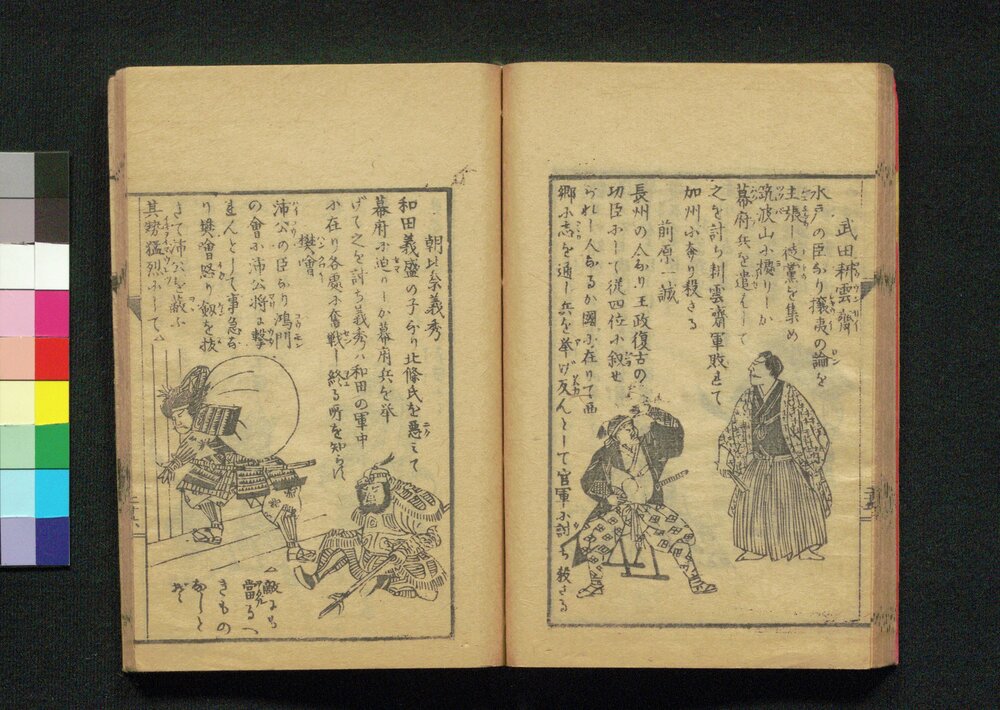 武田耕雲齋
水戸の臣なり攘夷の論を
主張し徒黨を集め
筑波山小據りしか
幕府兵を遣はして
之を討ち耕雲齋軍敗れて
加州小奔り殺さる
前原一誠
長州の人なり王政復古の
功臣小して從四位小叙せ
られし人なるか國小在りて西
郷小志を通し兵を挙げ反んとして官軍小討ち殺さる
朝比奈義秀
和田義盛の子なり北條氏を悪みて
幕府小迫りしか幕府兵を举
げて之を討ち義秀ハ和田の軍中
小在り各處小奮戰し終る所を知られ
樊噲
沛公の臣なり鴻門
の會小沛公将に撃
れんとして事急な
り樊噲怒り劔を抜
きて沛公を蔽ふ
其勢猛烈小して
敵にも
當るへ
きもの
なしと
ぞ